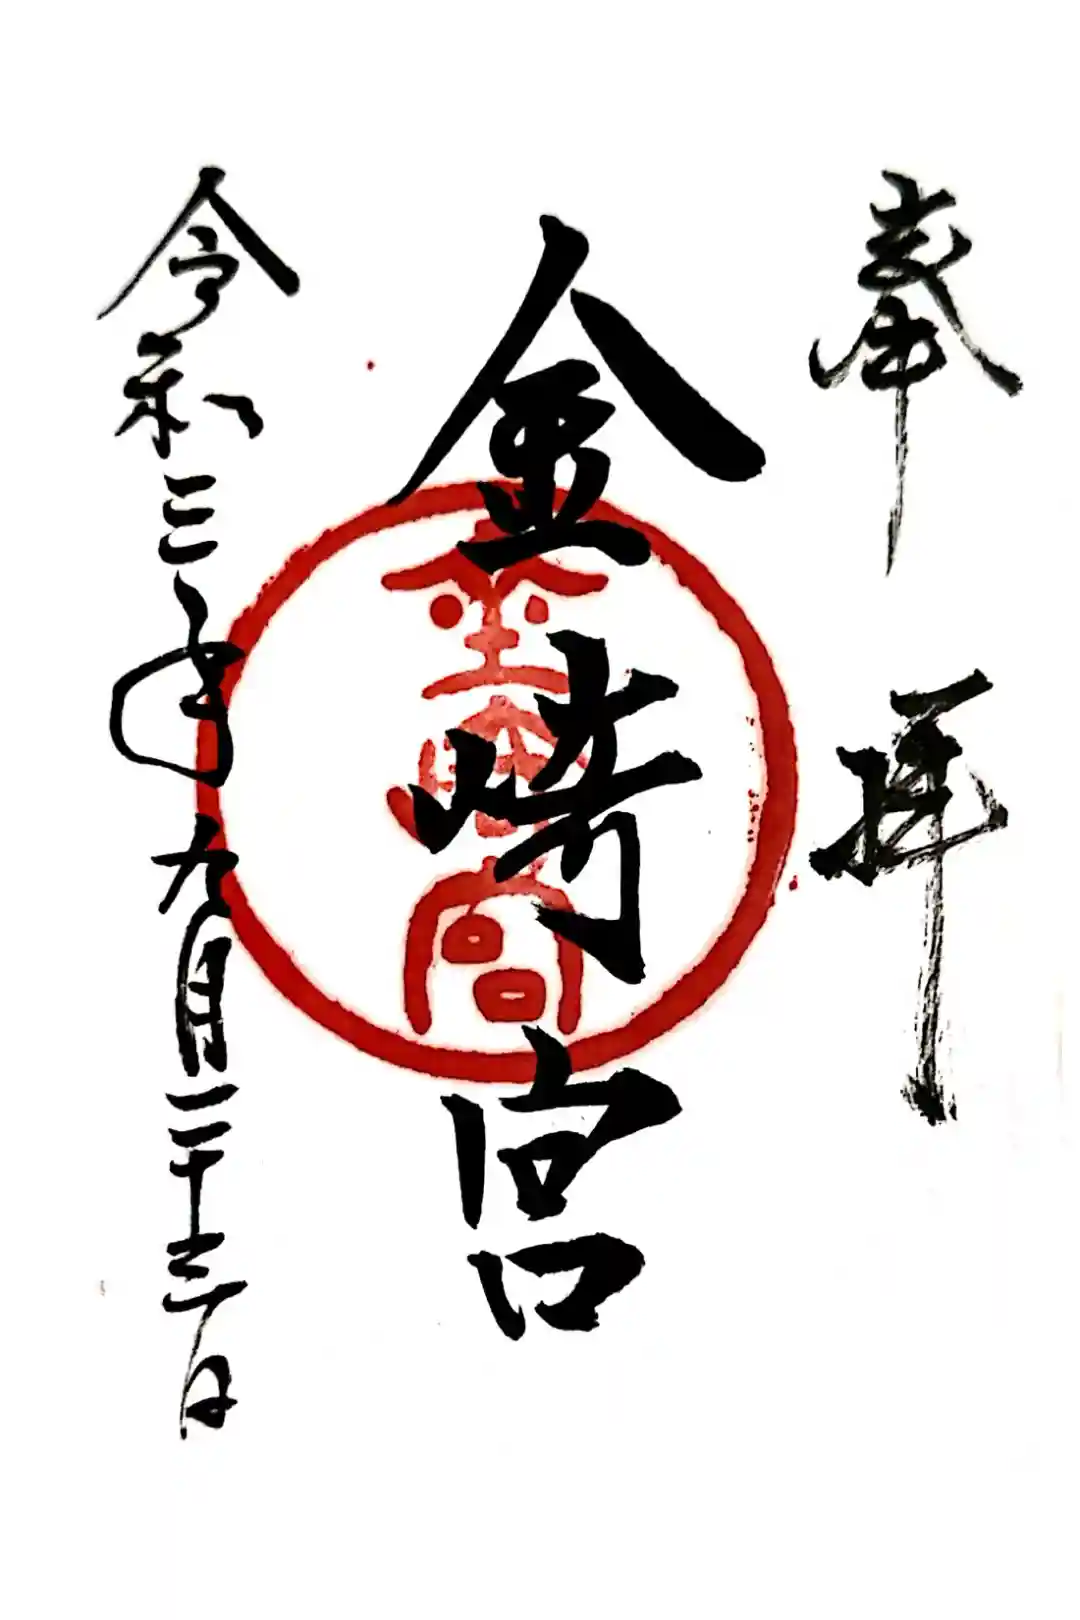 奉拝
金崎宮
金崎宮
令和三年九月二十三日